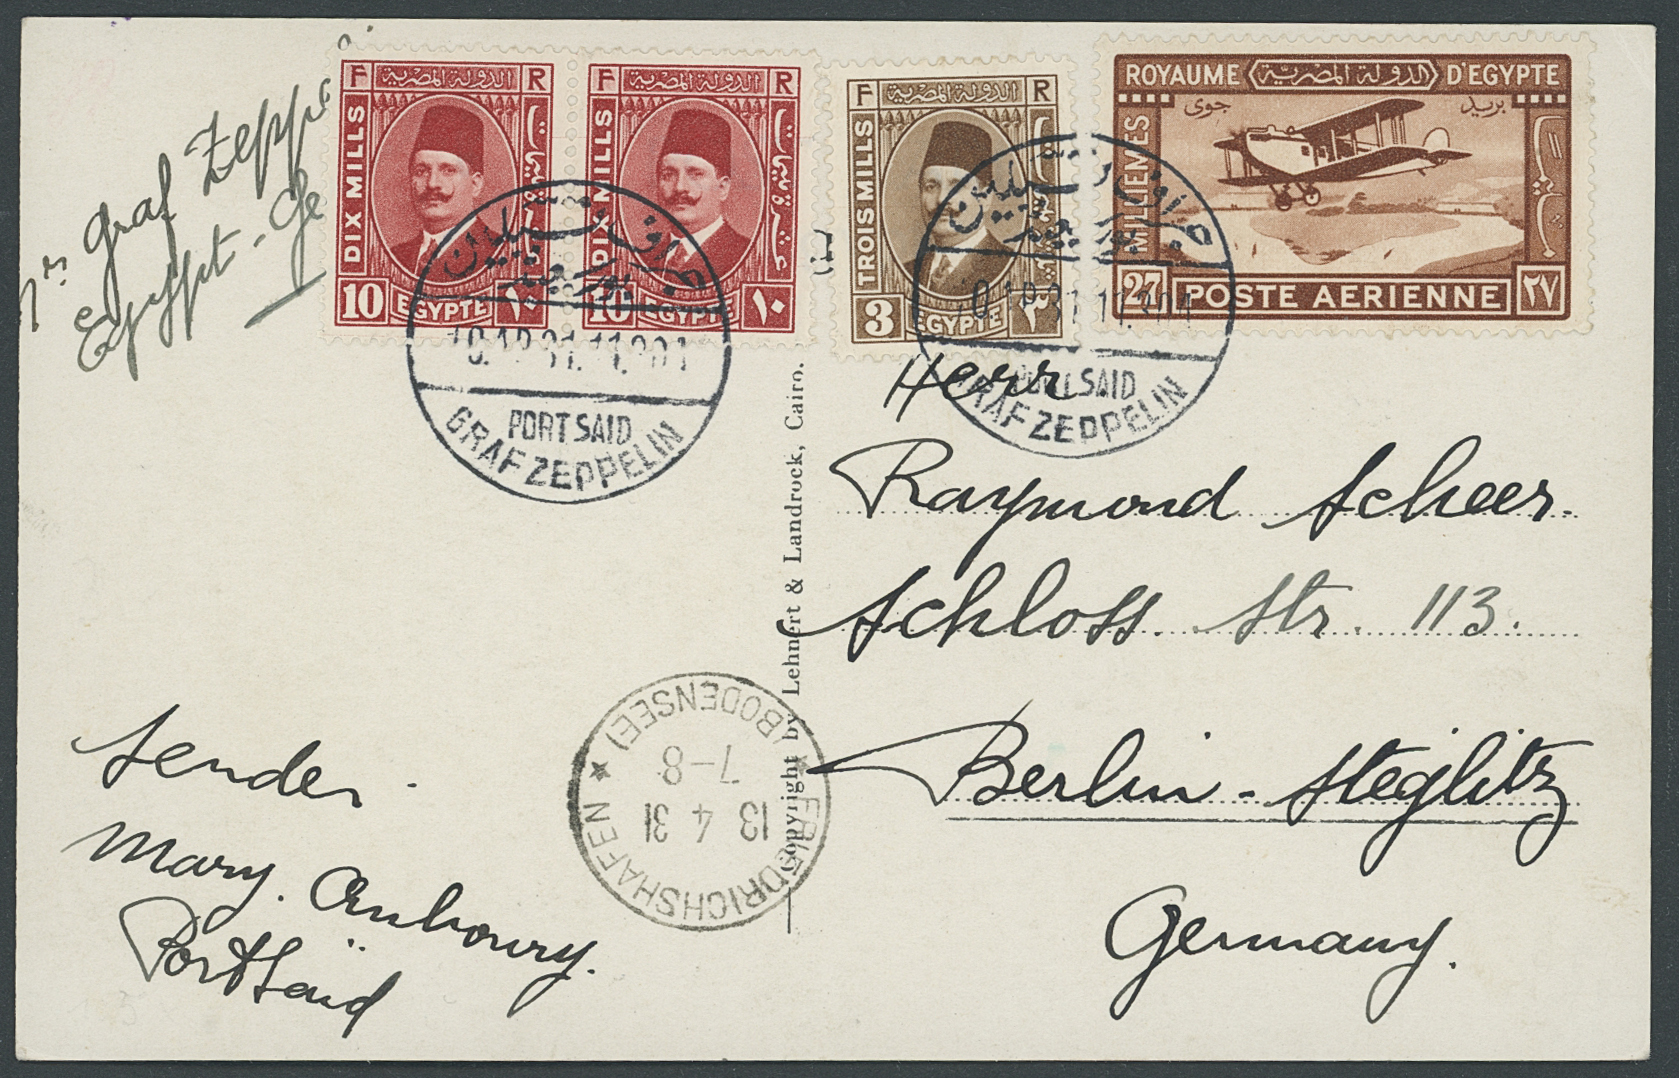 Graf Zeppe
Egypt - Ge
F الدولة المصرية R
DIX MILLS
10 EGYPTE ١٠
F الدولة المصرية R
DIX MILLS
10 EGYPTE ١٠
F الدولة المصرية R
TROIS MILLS
3 EGYPTE ٣
ROYAUME الدولة المصرية D'EGYPTE
بريد جوى
MILLIEMES
27 POSTE AERIENNE ٢٧
جراف زبلين
بورسعيد
10.AP.31.11.
PORT SAID
GRAF ZEPPELIN
جراف زبلين
بورسعيد
PORT SAID
GRAF ZEPPELIN
Herr
Raymond Scheer.
Schloss Str. 113.
Berlin - Steglitz
Germany.
Copyright by Lehnert & Landrock, Cairo.
FRIEDRICHSHAFEN
13 4 31
7-8
(BODENSEE)
Sender
Mary. Anhoury.
Port Saïd